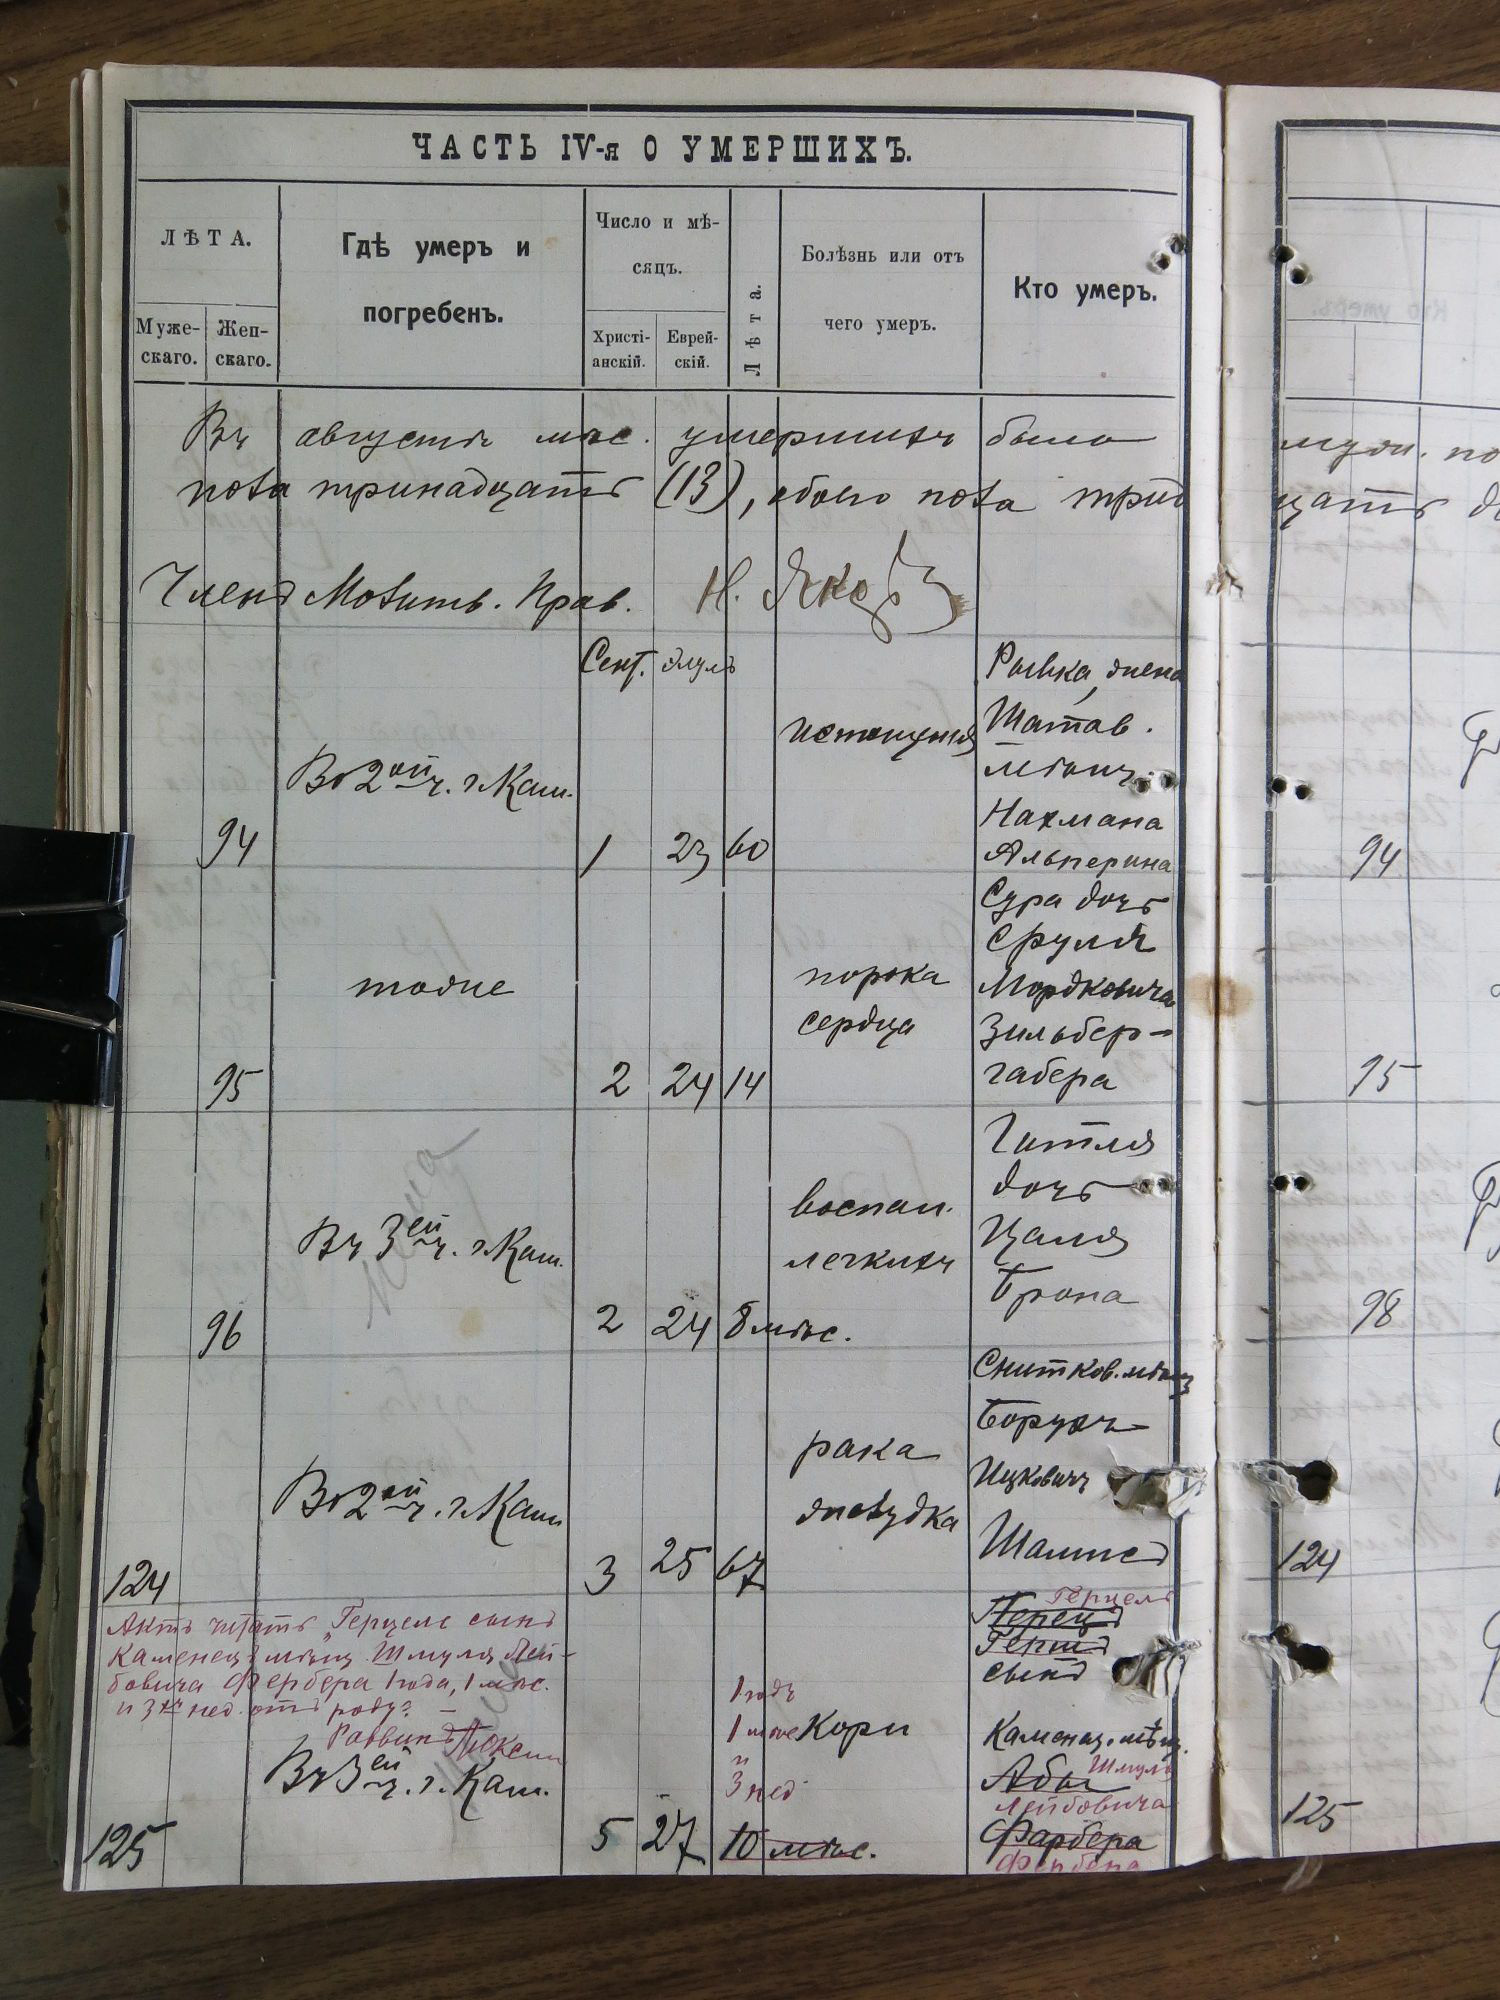 ЧАСТЬ IV-я О УМЕРШИХЪ.
ЛѢТА.
Муже-
скаго.
Жен-
скаго.
Гдѣ умеръ и
погребенъ.
Число и мѣ-
сяцъ.
Христі-
анскій.
Еврей-
скій.
Лѣта.
Болѣзнь или отъ
чего умеръ.
Кто умеръ.
Въ августѣ мѣс. умершихъ было
пола тринадцать (13), обоего пола трид
Членъ Молитв. Прав. Н.
Сент. Элулъ
94
Во 2ой ч. г. Кам.
1 23 60
истощенія
Рывка, жена
Шатав.
мѣщ.
Нахмана
Альперина
95
тоже
2 24 14
порока
сердца
Сура дочь
Сруля
Мордковича
Зильбер-
габера
96
Въ 3ей ч. г. Кам.
2 24 8 мѣс.
воспал.
легкихъ
Гитля
дочь
Цаля
Брона
124
Во 2ой ч. г. Кам
3 25 67
рака
желудка
Снитков. мѣщ
Борухъ
Ицковичъ
Шампед
Актъ читать „Герцель сынъ
Каменец. мѣщ. Шмуля Лей-
бовича Фербера 1 года, 1 мѣс.
и 3хъ нед. отъ роду".
Раввинъ
125
Въ 3ей ч. г. Кам.
5 27
1 годъ
1 мѣс
и
3 нед
10 мѣс.
Кори
Герцель
Перецъ
Гершъ
сынъ
Каменец. мѣщ.
Шмуля
Абы
Лейбовича
Фарбера
Фербера
муж. по
цать
94
95
98
124
125